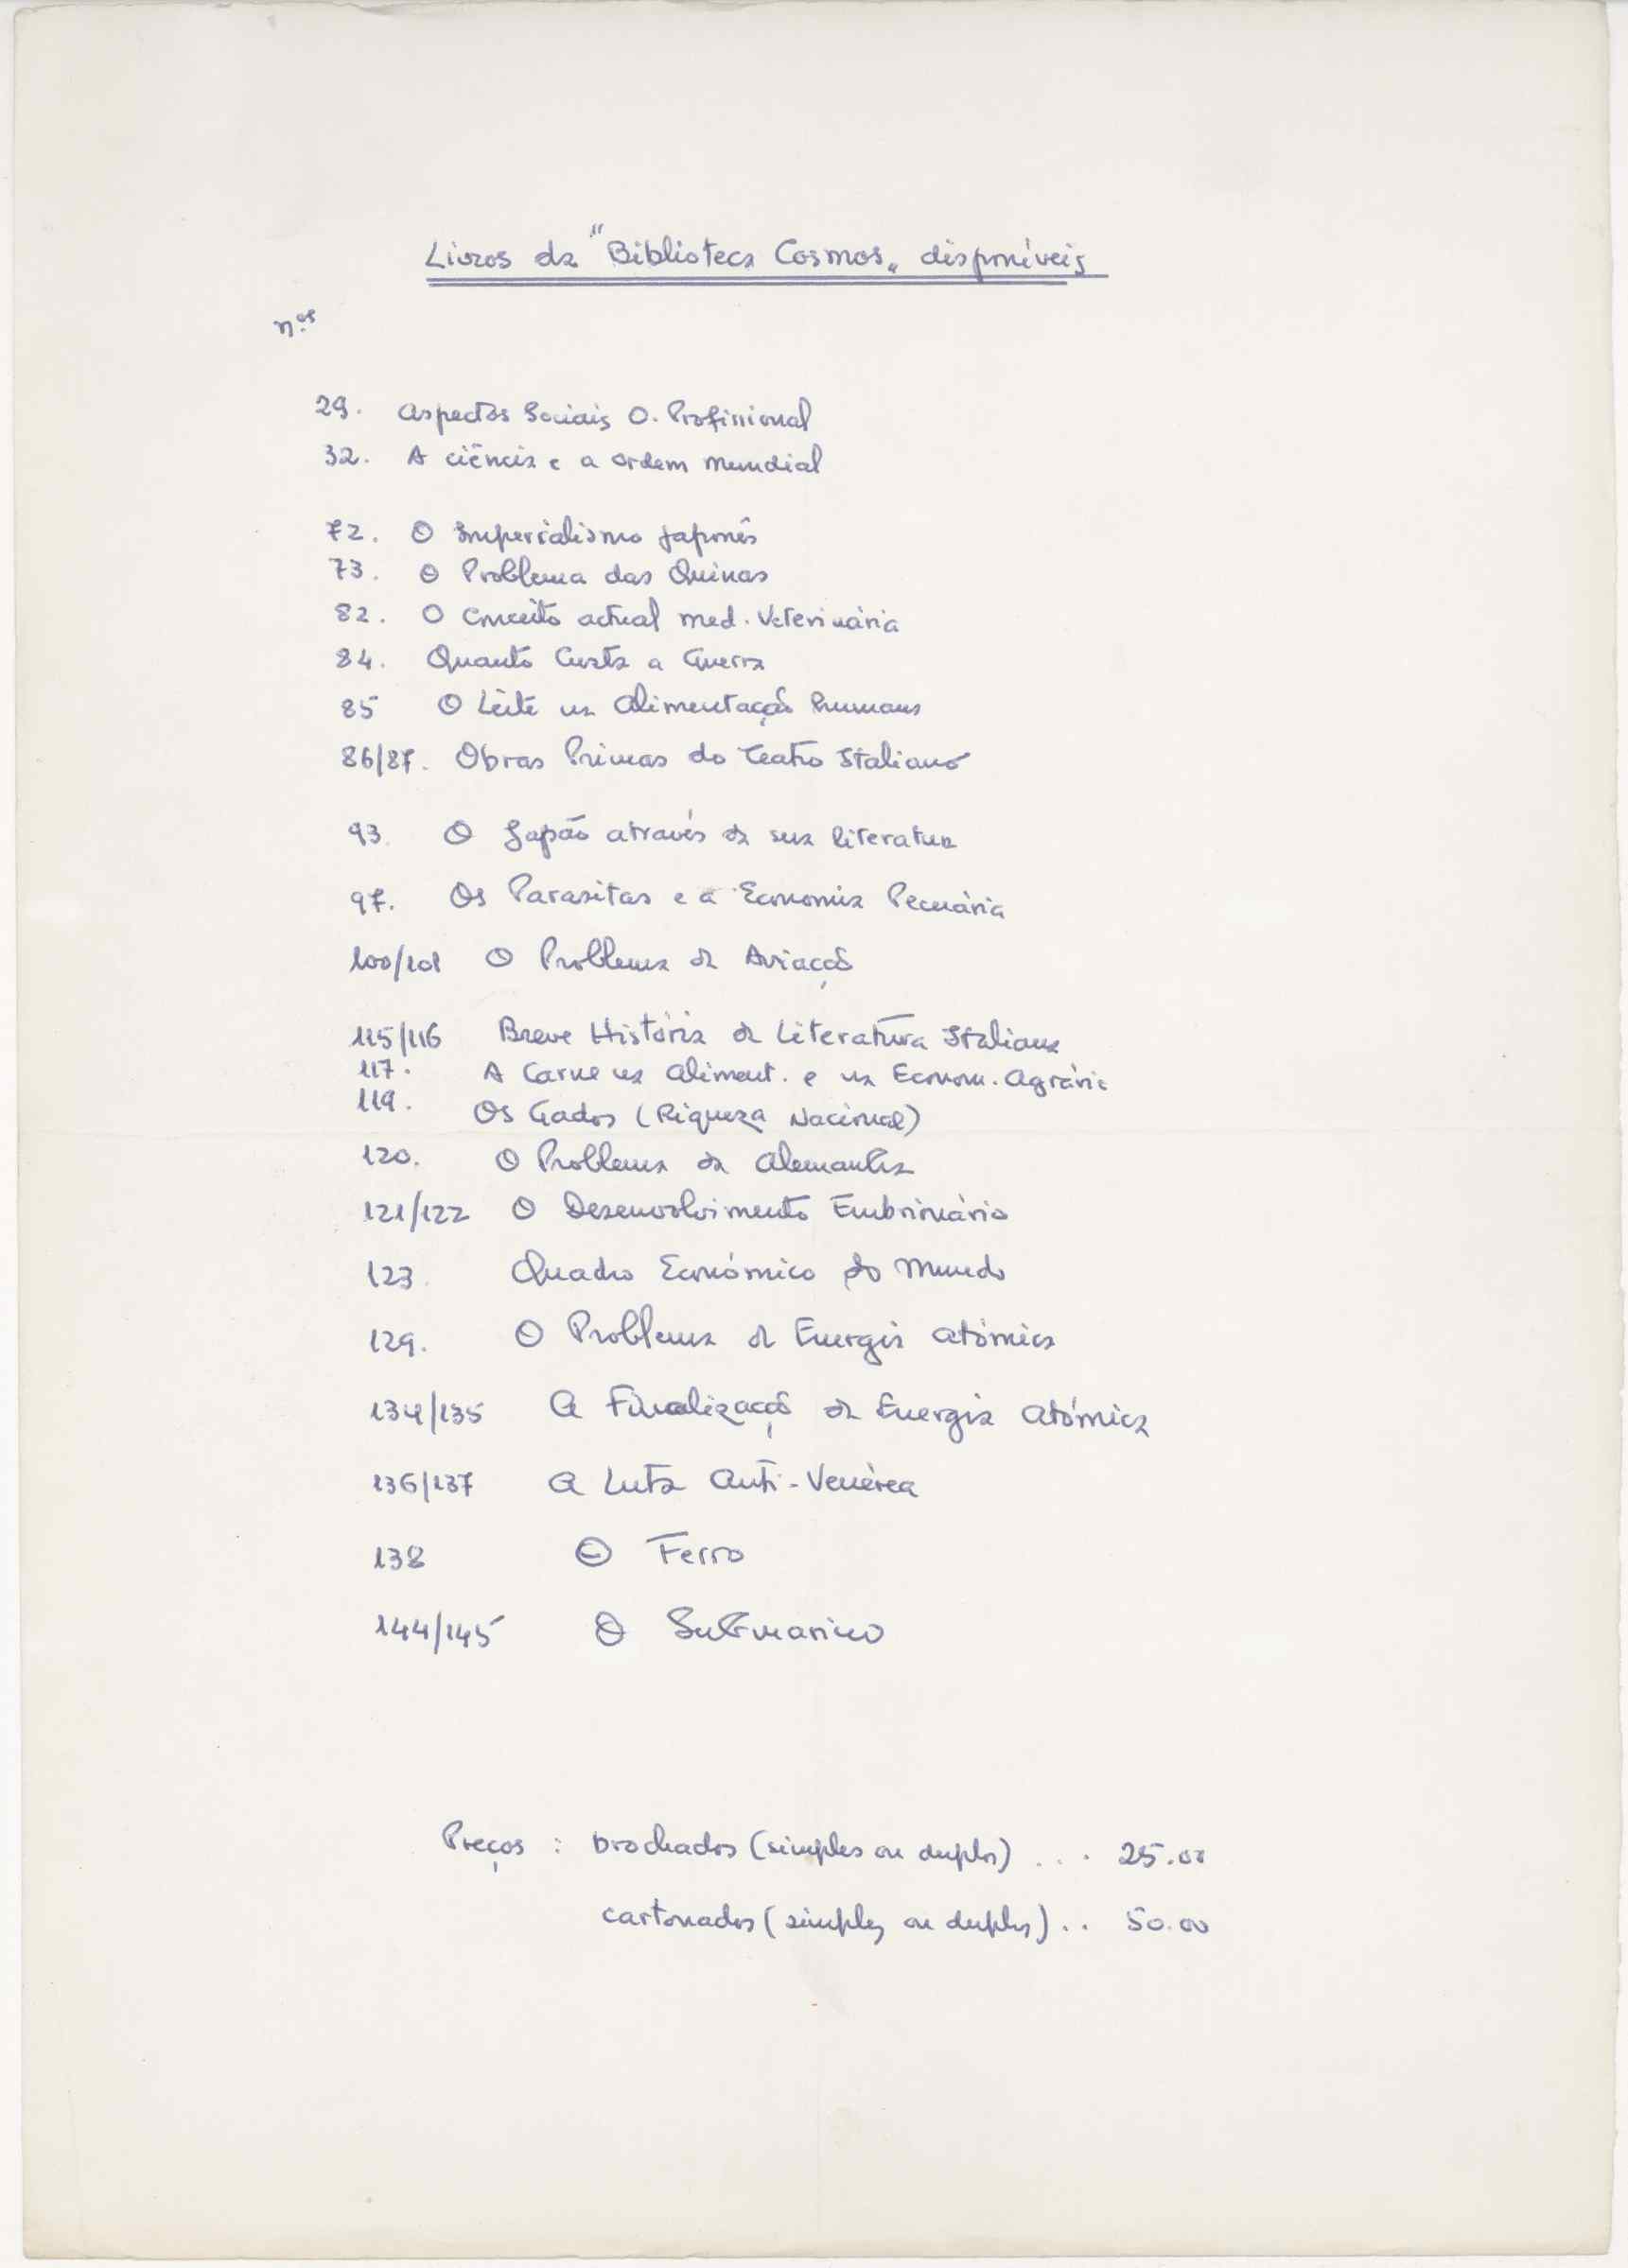 Livros da "Biblioteca Cosmos" disponíveis
n.os
29. Aspectos Sociais O. Profissional
32. A ciência e a ordem mundial
72. O Imperialismo Japonês
73. O Problema das Quinas
82. O Conceito actual med. Veterinária
84. Quanto Custa a Guerra
85 O Leite na Alimentação humana
86/87. Obras Primas do Teatro Italiano
93. O Japão através da sua literatura
97. Os Parasitas e a Economia Pecuária
100/101 O Problema da Aviação
115/116 Breve História da Literatura Italiana
117. A Carne na Aliment. e na Econom. Agrária
119. Os Gados (Riqueza Nacional)
120. O Problema da Alemanha
121/122 O Desenvolvimento Embrionário
123. Quadro Económico do Mundo
129. O Problema da Energia Atómica
134/135 A Finalização da Energia Atómica
136/137 A Luta Anti-Venérea
138 O Ferro
144/145 O Submarino
Preços : brochados (simples ou duplos) ... 25.00
cartonados (simples ou duplos) .. 50.00